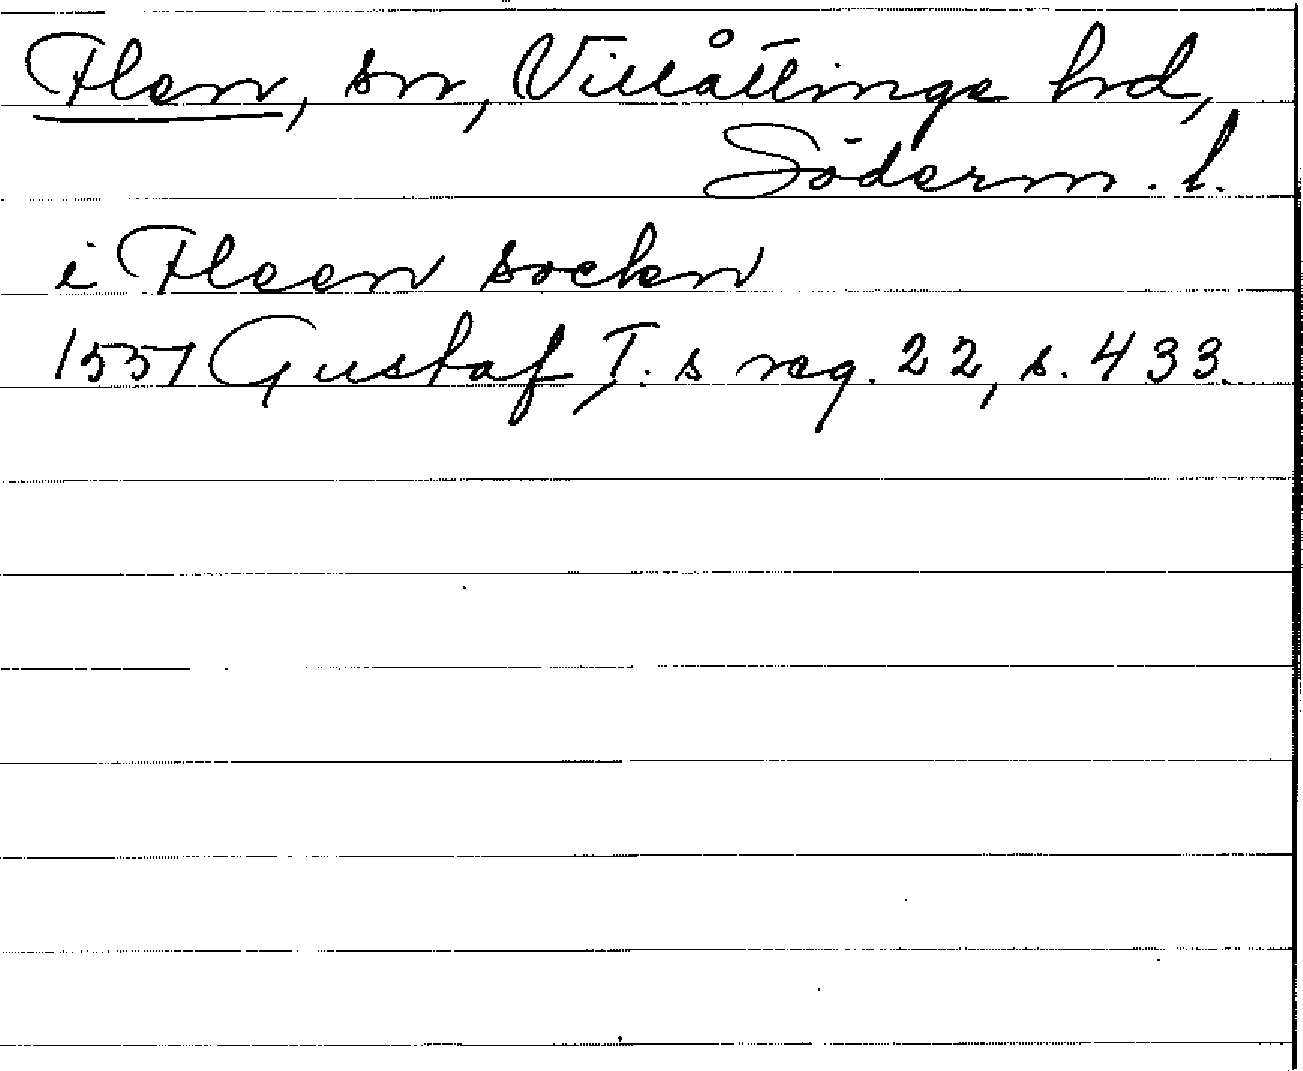 Flen, sn, Villåttinge hd,
Söderm. l.
i Fleen sockn
1551 Gustaf I. s reg. 22, s. 433.